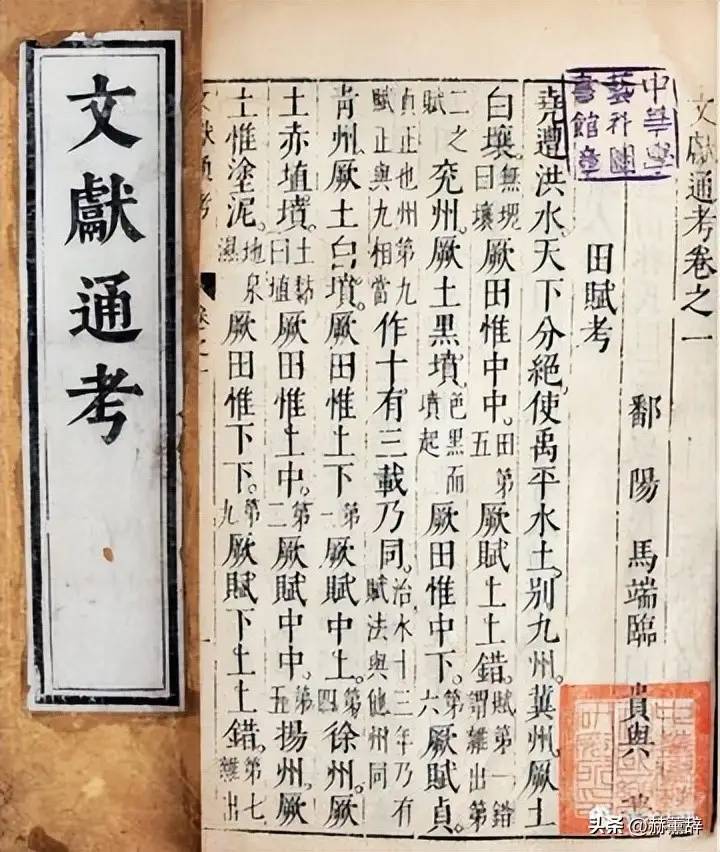 文獻通考
文獻通考卷之一
中華學
藝社圖
書館章
鄱陽 馬端臨 貴與
田賦考
堯遭洪水。天下分絕。使禹平水土。別九州。冀州。厥土
白壤。無塊曰壤厥田惟中中。田第五厥賦上上錯。賦第一錯謂雜出第
二之賦兗州。厥土黑墳。色黑而墳起厥田惟中下。第六厥賦貞。
貞正也州第九賦正與九相當作十有三載乃同。治水十三年乃有賦法與他州同
青州。厥土白墳。厥田惟上下第厥賦中上。第四徐州。厥
土赤埴墳。土黏曰埴厥田惟上中。第二厥賦中中。第五揚州。厥
土惟塗泥。地泉濕厥田惟下下。第九厥賦下上上錯。第七雜出
文獻通考 卷之一
头条 @赫薰辞